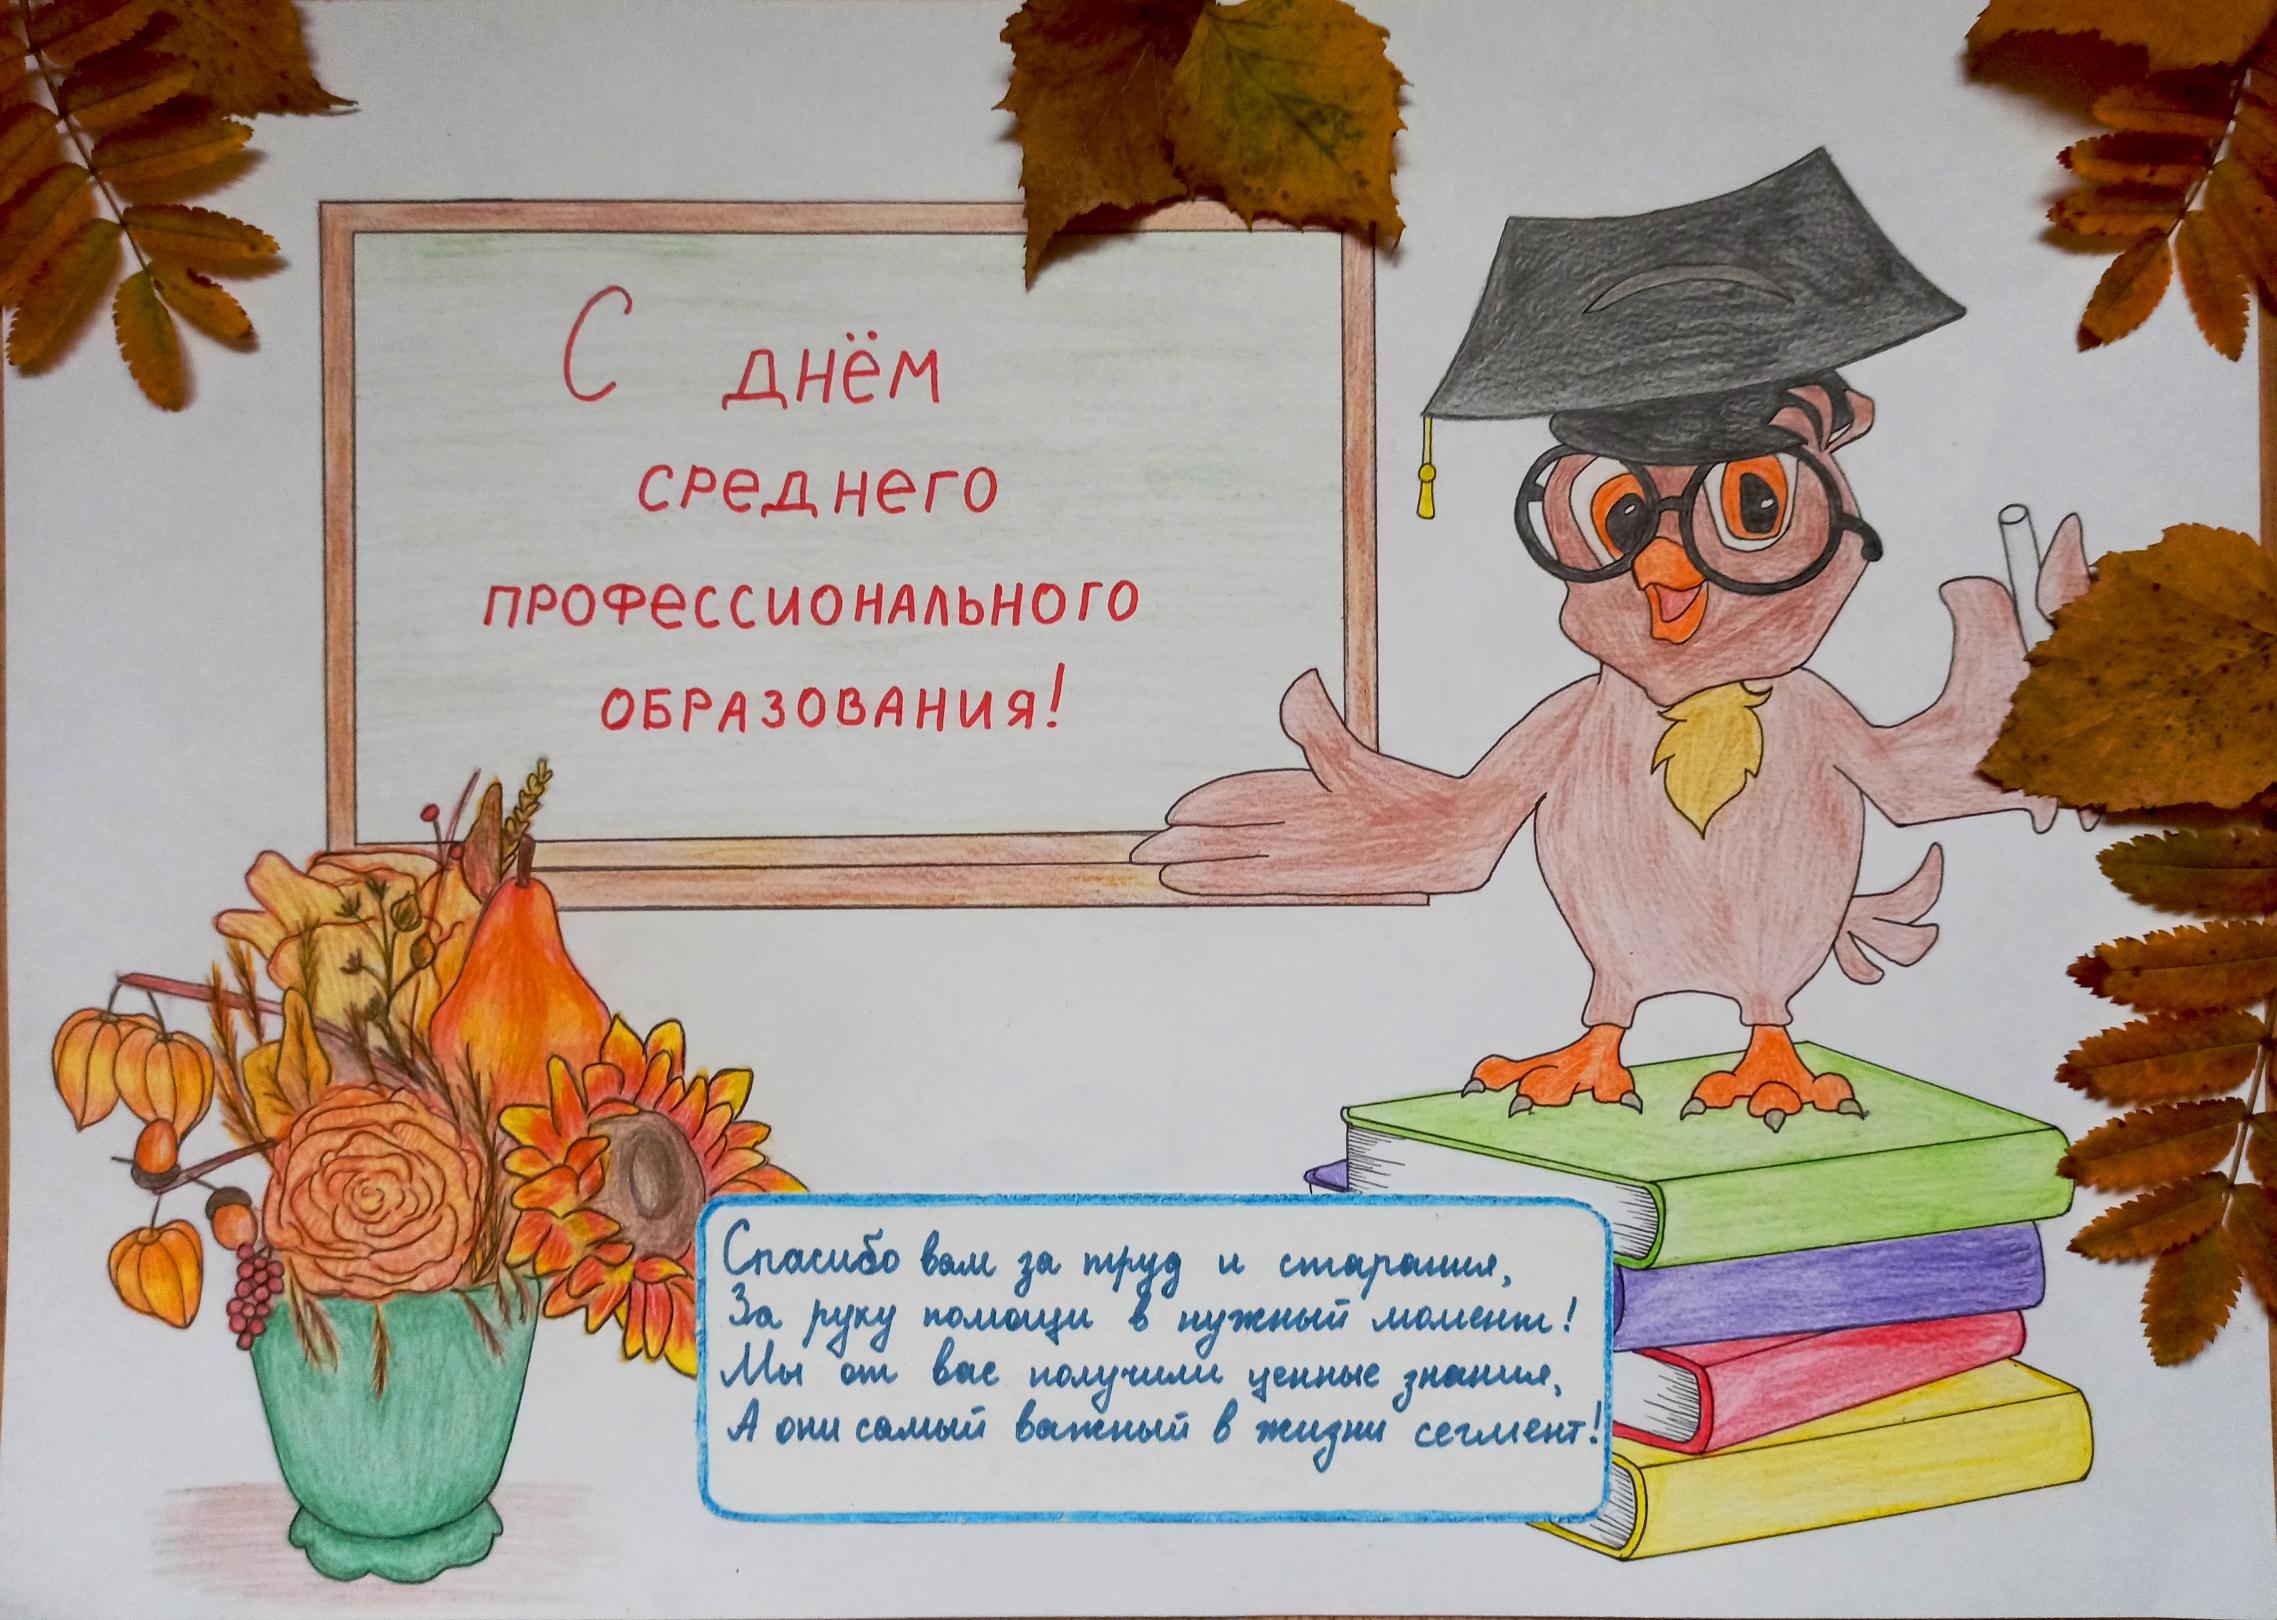 С днём
среднего
профессионального
образования!
Спасибо вам за труд и старания,
За руку помощи в нужный момент!
Мы от вас получили ценные знания,
А они самый важный в жизни сегмент!